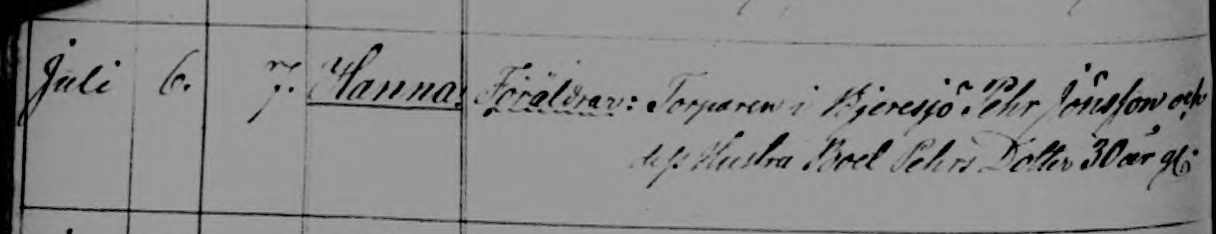 Juli 6. 7. Hanna. Föräldrar: Torparen i Bjeresjö Pehr Jönsson och
dess Hustru Boel Pehrs Dotter 30 år gl: